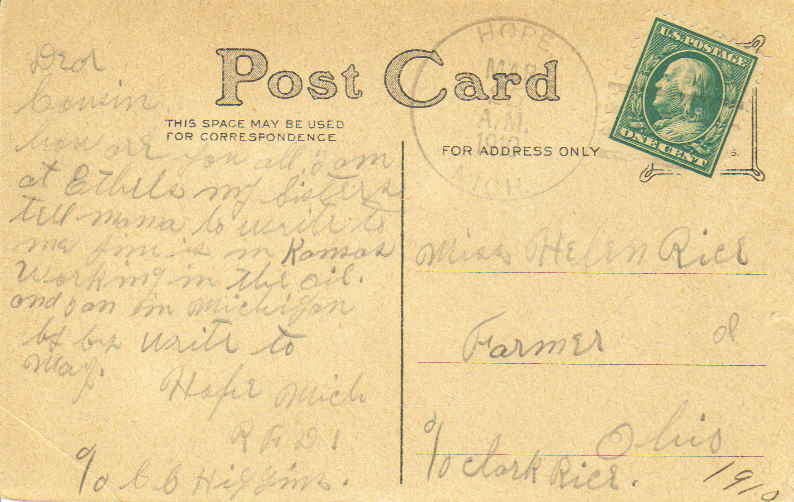 Post Card
THIS SPACE MAY BE USED
FOR CORRESPONDENCE
FOR ADDRESS ONLY
HOPE
MAR
A.M.
1910
MICH.
U.S. POSTAGE
ONE CENT
Dear
Cousin
how are you all I am
at Ethels my Sisters
tell mama to write to
me Jim is in Kansas
Working in the oil.
and I am in Michigan
by by write to
May.
Hope Mich
R F D 1
c/o C C Higgins.
Miss Helen Rice
Farmer
Ohio
c/o Clark Rice.
1910